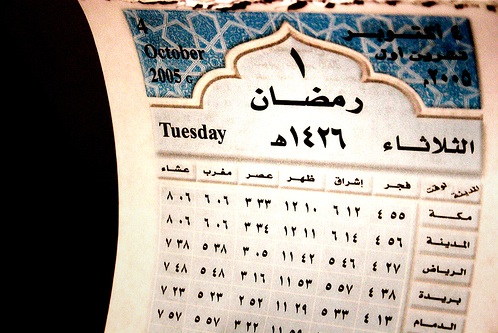 4
October
2005 G
٤ أكتوبر
تشرين أول
٢٠٠٥م
١
رمضان
١٤٢٦هـ
Tuesday
الثلاثاء
المدينة توقيت فجر إشراق ظهر عصر مغرب عشاء
مكة ٤ ٥٥ ٦ ١٢ ١٢ ١٠ ٣ ٣٣ ٦ ٠٦ ٨ ٠٦
المدينة ٤ ٥٦ ٦ ١٤ ١٢ ١١ ٣ ٣٤ ٦ ٠٦ ٨ ٠٦
الرياض ٤ ٢٧ ٥ ٤٦ ١١ ٤٢ ٣ ٠٥ ٥ ٣٨ ٧ ٣٨
بريدة ٤ ٣٨ ٥ ٥٧ ١١ ٥٣ ٣ ١٦ ٥ ٤٨ ٧ ٤٨
الدمام ٤ ١٣ ٥ ٣٣ ١١ ٢٩ ٢ ٥٢ ٥ ٢٣ ٧ ٢٣
٣ ٢٢ ٥ ٥٧ ٧ ٥٧